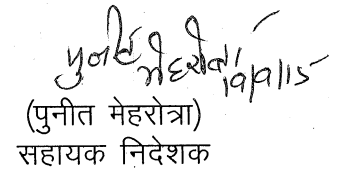 पुनीत मेहरोत्रा
19/9/15
(पुनीत मेहरोत्रा)
सहायक निदेशक